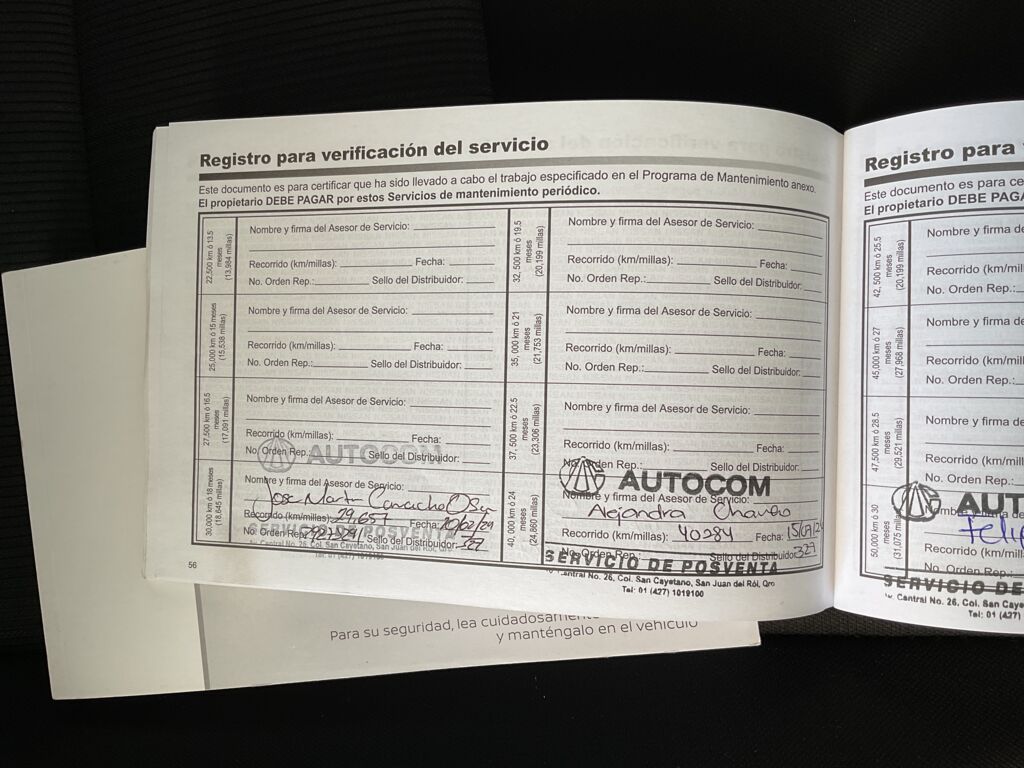 Registro para verificación del servicio
Este documento es para certificar que ha sido llevado a cabo el trabajo especificado en el Programa de Mantenimiento anexo.
El propietario DEBE PAGAR por estos Servicios de mantenimiento periódico.
22,500 km ó 13.5
meses
(13,984 millas)
Nombre y firma del Asesor de Servicio:
Recorrido (km/millas): Fecha:
No. Orden Rep.: Sello del Distribuidor:
25,000 km ó 15 meses
(15,538 millas)
Nombre y firma del Asesor de Servicio:
Recorrido (km/millas): Fecha:
No. Orden Rep.: Sello del Distribuidor:
27,500 km ó 16.5
meses
(17,091 millas)
Nombre y firma del Asesor de Servicio:
Recorrido (km/millas): Fecha:
No. Orden Rep. Sello del Distribuidor:
AUTOCOM
30,000 km ó 18 meses
(18,645 millas)
Nombre y firma del Asesor de Servicio:
Jose Martin Camacho
Recorrido (km/millas): 29,657 Fecha:
No. Orden Rep. Sello del Distribuidor: 327
SERVICIO DE POSVENTA
Central No. 26, Col. San Cayetano, San Juan del Río, Qro
56
32, 500 km ó 19.5
meses
(20,199 millas)
Nombre y firma del Asesor de Servicio:
Recorrido (km/millas): Fecha:
No. Orden Rep.: Sello del Distribuidor:
35, 000 km ó 21
meses
(21,753 millas)
Nombre y firma del Asesor de Servicio:
Recorrido (km/millas): Fecha:
No. Orden Rep.: Sello del Distribuidor:
37, 500 km ó 22.5
meses
(23,306 millas)
Nombre y firma del Asesor de Servicio:
Recorrido (km/millas): Fecha:
No. Orden Rep.:
AUTOCOM
40, 000 km ó 24
meses
(24,860 millas)
Nombre y firma del Asesor de Servicio:
Alejandra Chavero
Recorrido (km/millas): 40284 Fecha: 15/07/24
No. Orden Rep.: Sello del Distribuidor: 327
SERVICIO DE POSVENTA
Central No. 26, Col. San Cayetano, San Juan del Rói, Qro
Tel: 01 (427) 1019100
Registro para
Este documento es para ce
El propietario DEBE PAGA
42, 500 km ó 25.5
meses
(20,199 millas)
Nombre y firma d
Recorrido (km/mill
No. Orden Rep.:
45,000 km ó 27
meses
(27,968 millas)
Nombre y firma d
Recorrido (km/mil
No. Orden Rep.:
47,500 km ó 28.5
meses
(29,521 millas)
Nombre y firma
Recorrido (km/m
No. Orden Rep
AUT
50,000 km ó 30
meses
(31,075 millas)
Nombre y firma
Felip
Recorrido (km/
No. Orden
SERVICIO DE
Av. Central No. 26, Col. San Caye
Tel: 01
Para su seguridad, lea cuidadosamen
y manténgalo en el vehículo